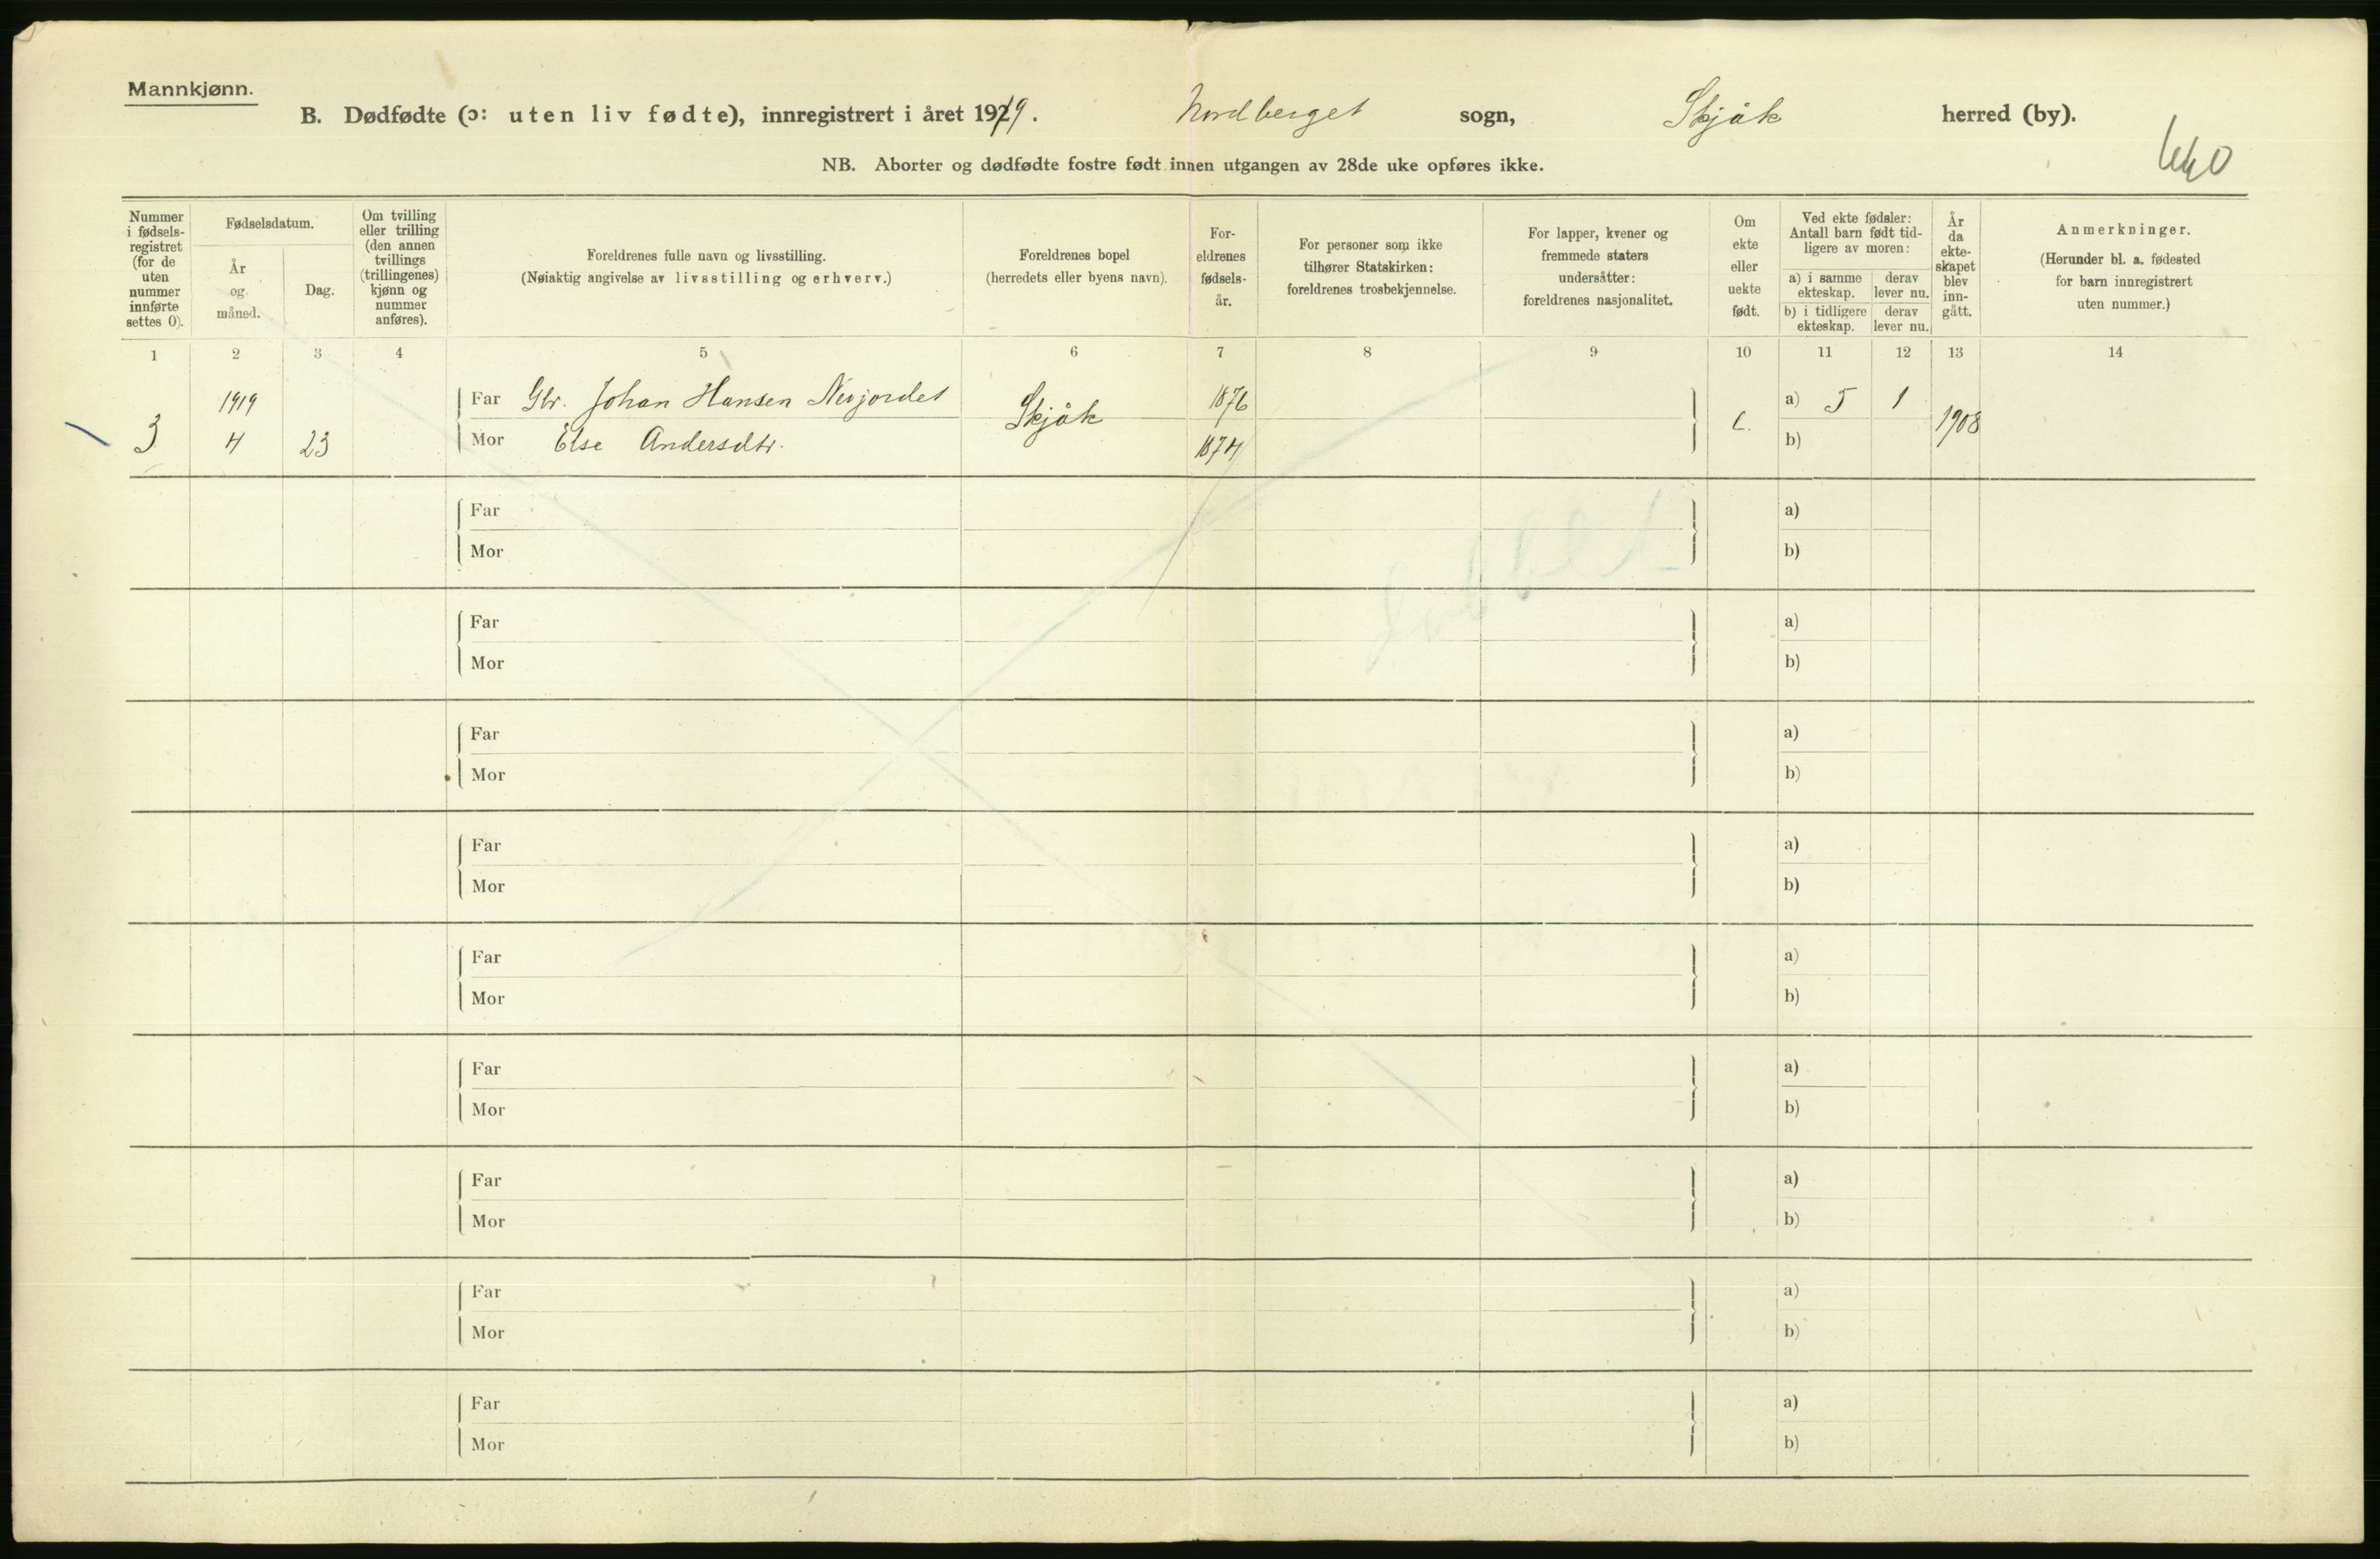 Mannkjønn.
B. Dødfødte (ɔ: uten liv fødte), innregistrert i året 1919. Nordberget sogn, Skjåk herred (by).
NB. Aborter og dødfødte fostre født innen utgangen av 28de uke opføres ikke.
Nummer i fødsels-registret (for de uten nummer innførte settes 0).
Fødselsdatum.
År og måned.
Dag.
Om tvilling eller trilling (den annen tvillings (trillingenes) kjønn og nummer anføres).
Foreldrenes fulle navn og livsstilling.
(Nøiaktig angivelse av livsstilling og erhverv.)
Foreldrenes bopel
(herredets eller byens navn).
For-eldrenes fødsels-år.
For personer som ikke tilhører Statskirken: foreldrenes trosbekjennelse.
For lapper, kvener og fremmede staters undersåtter: foreldrenes nasjonalitet.
Om ekte eller uekte født.
Ved ekte fødsler: Antall barn født tid-ligere av moren:
a) i samme ekteskap.
derav lever nu.
b) i tidligere ekteskap.
derav lever nu.
År da ekte-skapet blev inn-gått.
Anmerkninger.
(Herunder bl. a. fødested for barn innregistrert uten nummer.)
1 2 3 4 5 6 7 8 9 10 11 12 13 14
3 1919 4 23
Far Gbr. Johan Hansen Skjåk 1876 a) 5 1 1908
Mor Else Andersdtr. 1874 b)
Far a)
Mor b)
Far a)
Mor b)
Far a)
Mor b)
Far a)
Mor b)
Far a)
Mor b)
Far a)
Mor b)
Far a)
Mor b)
Far a)
Mor b)
Far a)
Mor b)